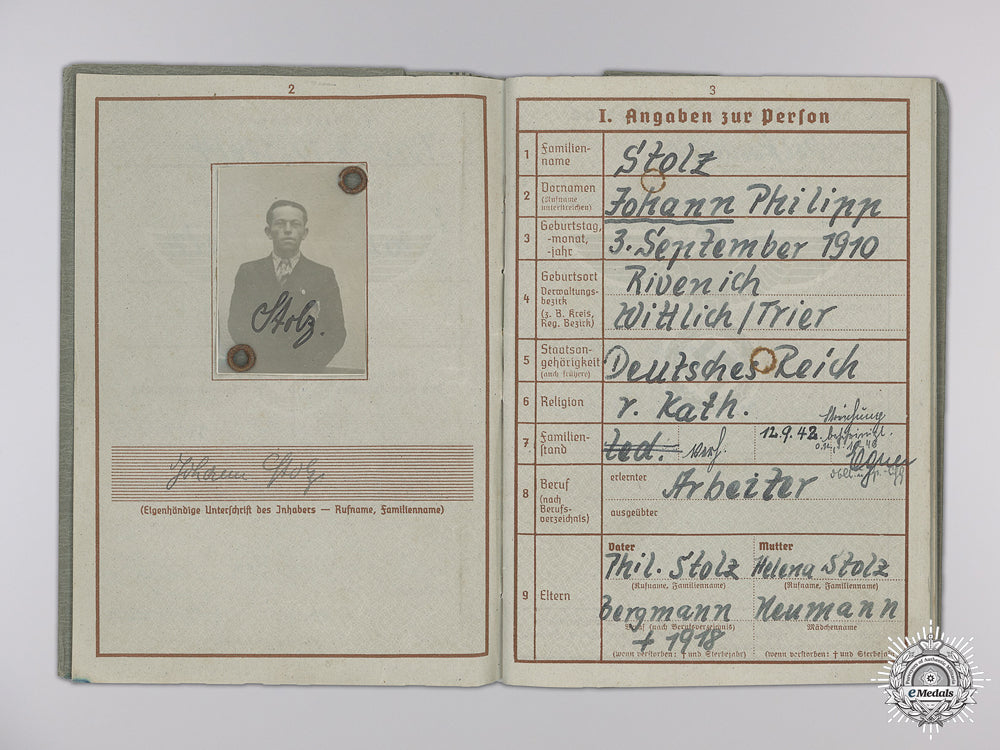 2
Stolz.
Johann Stolz
(Eigenhändige Unterschrift des Inhabers — Rufname, Familienname)
3
I. Angaben zur Person
1 Familien-
name
Stolz
2 Vornamen
(Rufname
unterstreichen)
Johann Philipp
3 Geburtstag,
-monat,
-jahr
3. September 1910
4 Geburtsort
Verwaltungs-
bezirk
(z. B. Kreis,
Reg. Bezirk)
Rivenich
Wittlich/Trier
5 Staatsan-
gehörigkeit
(auch frühere)
Deutsches Reich
6 Religion
r. Kath.
7 Familien-
stand
led. verh.
12.9.42. Streichung
bescheinigt.
8 Beruf
(nach
Berufs-
verzeichnis)
erlernter
Arbeiter
ausgeübter
9 Eltern
Vater
Phil. Stolz
(Rufname, Familienname)
Bergmann
Beruf (nach Berufsverzeichnis)
† 1918
(wenn verstorben: † und Sterbejahr)
Mutter
Helena Stolz
(Rufname, Familienname)
Neumann
Mädchenname
(wenn verstorben: † und Sterbejahr)
eMedals